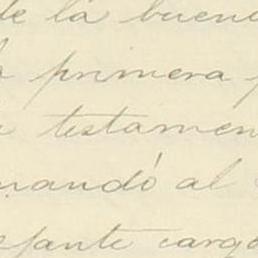 de la buena
primera
testamen
mandó al
efante cargo